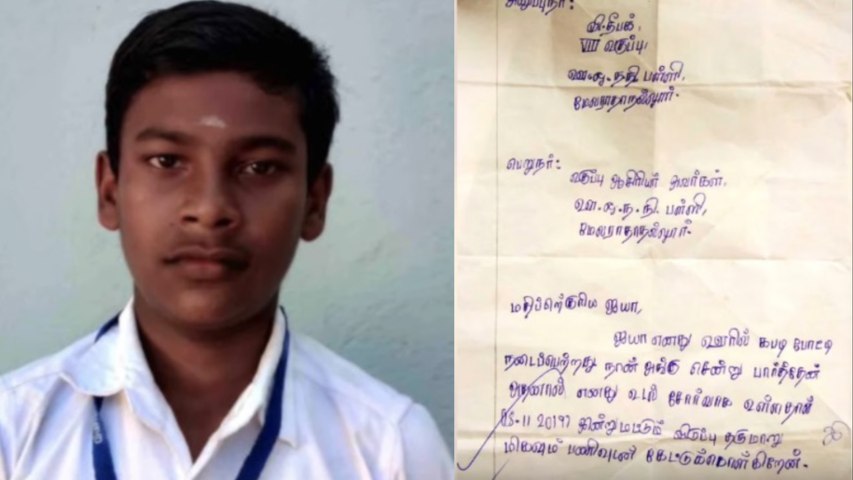 அனுப்புநர்:
வி.தீபக்,
VIII வகுப்பு,
ஊ.ஒ.ந.நி.பள்ளி,
மேலராதாநல்லூர்.
பெறுநர்:
வகுப்பு ஆசிரியர் அவர்கள்,
ஊ.ஒ.ந.நி.பள்ளி,
மேலராதாநல்லூர்.
மதிப்பிற்குரிய ஐயா,
ஐயா எனது ஊரில் கபடி போட்டி
நடைபெற்றது நான் அங்கு சென்று பார்த்தேன்
அதனால் எனது உடல் சோர்வாக உள்ளதால்
(25.11.2019) இன்று மட்டும் விடுப்பு தருமாறு
மிகவும் பணிவுடன் கேட்டுக்கொள்கிறேன்.